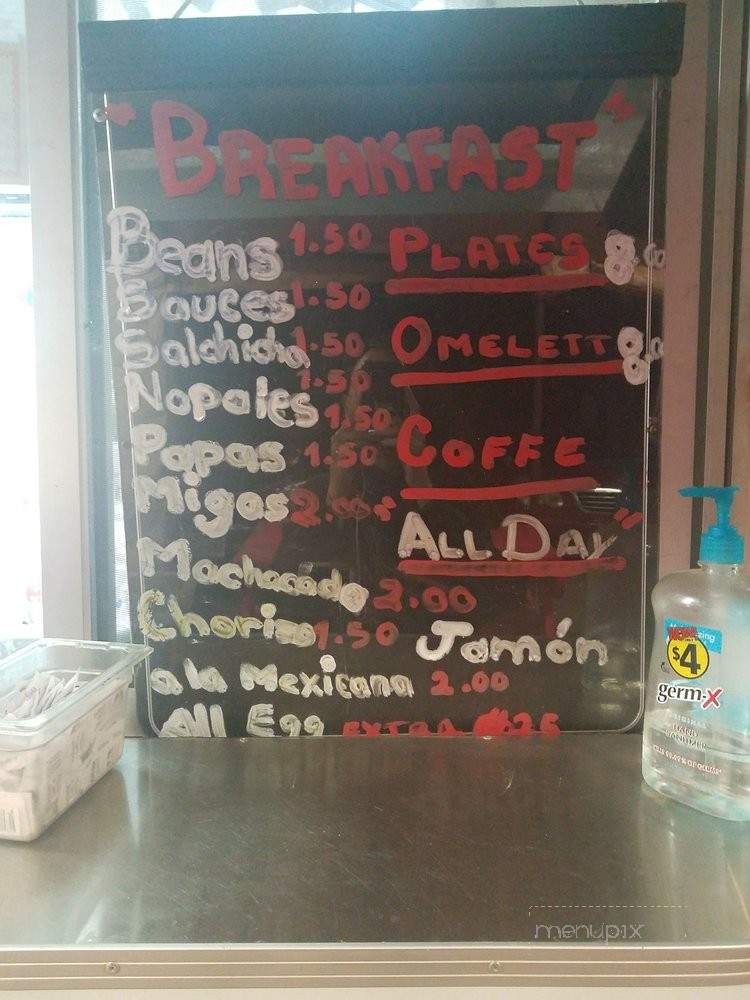 "BREAKFAST"
Beans 1.50
Sauces 1.50
Salchicha 1.50
1.50
Nopales 1.50
Papas 1.50
Migas 2.00
Machacado 2.00
Chorizo 1.50
a la Mexicana 2.00
All Egg EXTRA
PLATES
OMELETT
COFFE
"ALL DAY"
Jamón
NEW!
$4
germ-X
ORIGINAL
HAND
SANITIZER
menupix